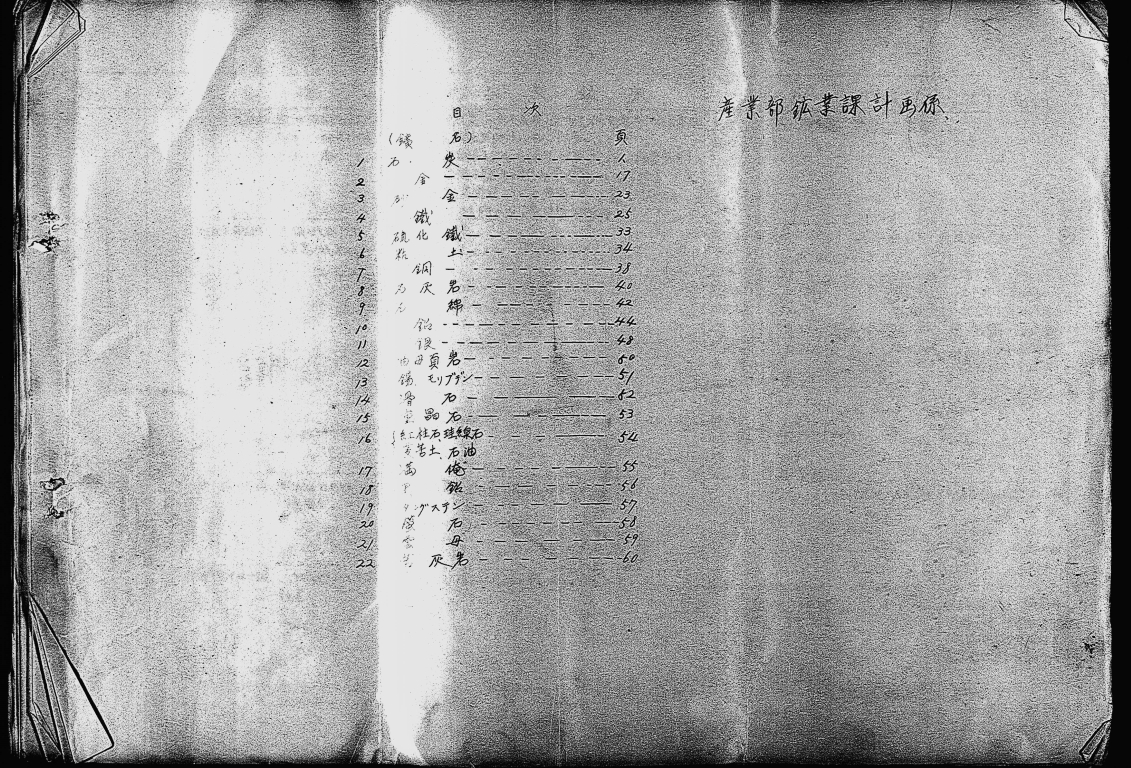 産業部鉱業課計画係
目 次
(鑛 石) 頁
1 石 炭 1
2 金 17
3 金 23
4 鐵 25
5 硫化鐵 33
6 粘土 34
7 銅 38
8 石灰岩 40
9 石綿 42
10 鉛 44
11 48
12 油母頁岩 50
13 モリブデン 51
14 滑石 52
15 晶石 53
16 紅柱石、珪線石
苦土、石油 54
17 満俺 55
18 鉛 56
19 タングステン 57
20 石 58
21 雲母 59
22 灰岩 60